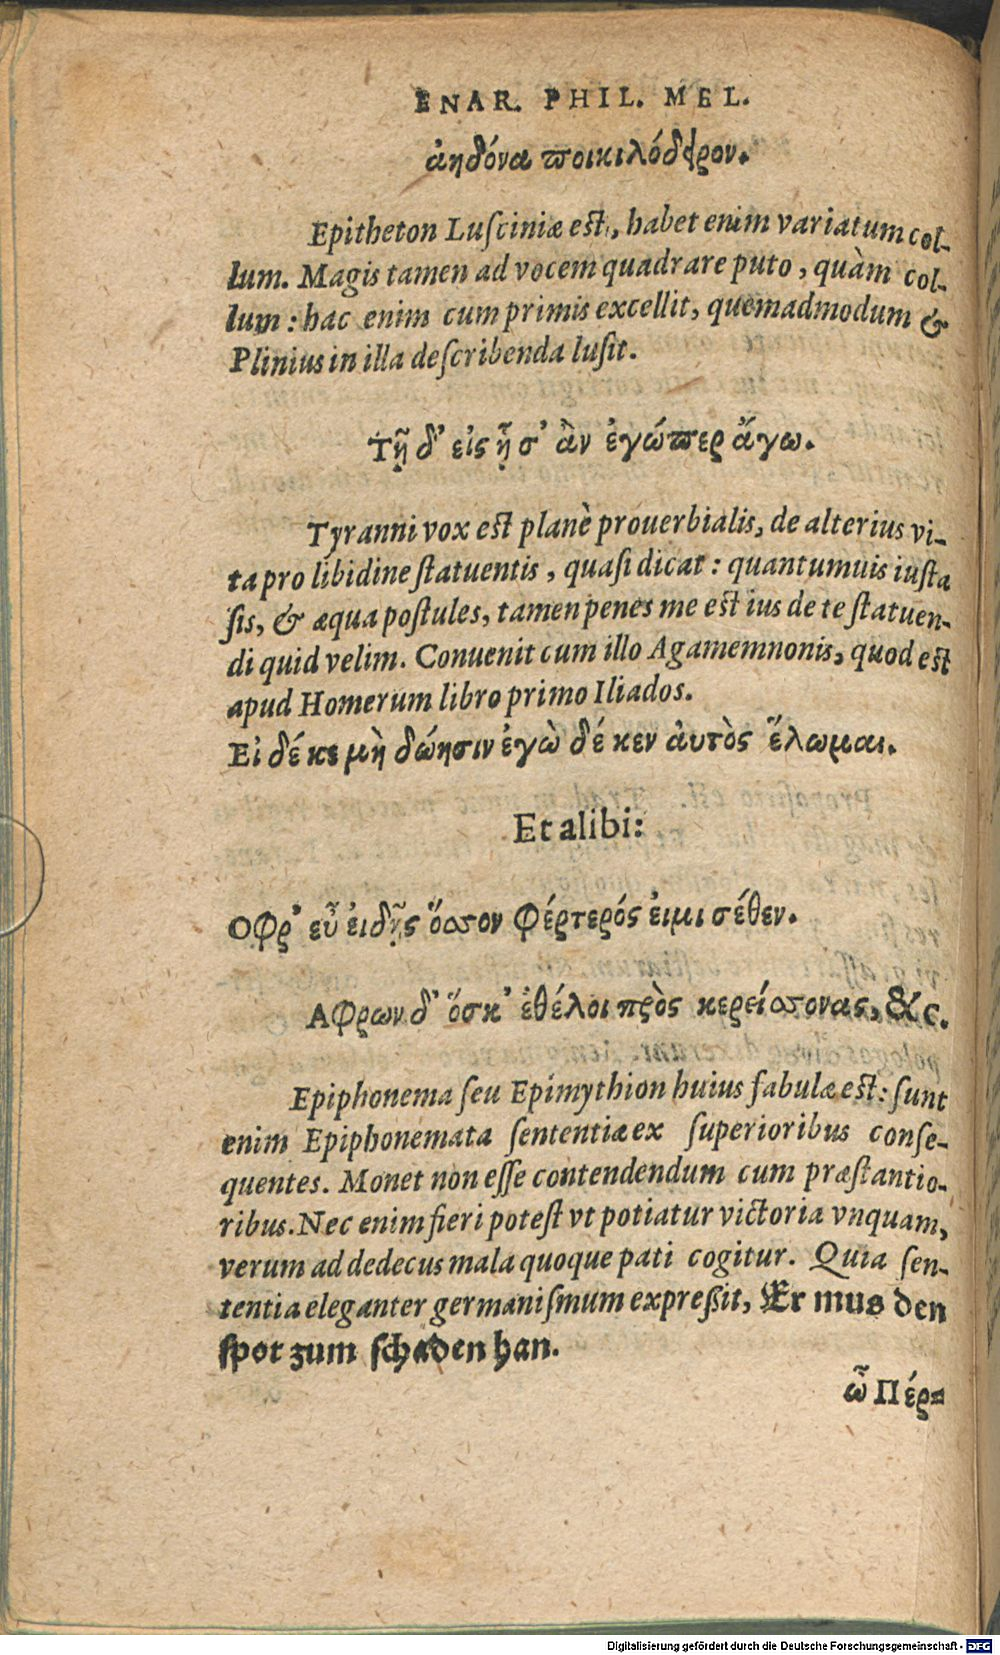 ENAR. PHIL. MEL.
ἀηδόνα ποικιλόδερον.
Epitheton Luſciniæ eſt, habet enim variatum col-
lum. Magis tamen ad vocem quadrare puto, quàm col-
lum: hac enim cum primis excellit, quemadmodum &
Plinius in illa deſcribenda luſit.
Τῇ δ' εἰς ᾗ σ' ἂν ἐγώπερ ἄγω.
Tyranni vox eſt planè prouerbialis, de alterius vi-
ta pro libidine ſtatuentis, quaſi dicat: quantumuis iuſta
ſis, & æqua poſtules, tamen penes me eſt ius de te ſtatuen-
di quid velim. Conuenit cum illo Agamemnonis, quod eſt
apud Homerum libro primo Iliados.
Εἰ δέ κε μὴ δώησιν ἐγὼ δέ κεν ἀυτὸς ἕλωμαι.
Et alibi:
Οφρ' εὖ ἐιδῇς ὅσσον φέρτερός ἐιμι σέθεν.
Αφρων δ' ὅσκ' ἐθέλοι πρὸς κερείσσονας, &c.
Epiphonema ſeu Epimythion huius fabulæ eſt: ſunt
enim Epiphonemata ſententiæ ex ſuperioribus conſe-
quentes. Monet non eſſe contendendum cum præſtantio-
ribus. Nec enim fieri poteſt vt potiatur victoria vnquam,
verum ad dedecus mala quoque pati cogitur. Quia ſen-
tentia eleganter germaniſmum expreßit, Er mus den
ſpot zum ſchaden han.
ὦ Πέρ-
Digitalisierung gefördert durch die Deutsche Forschungsgemeinschaft - DFG